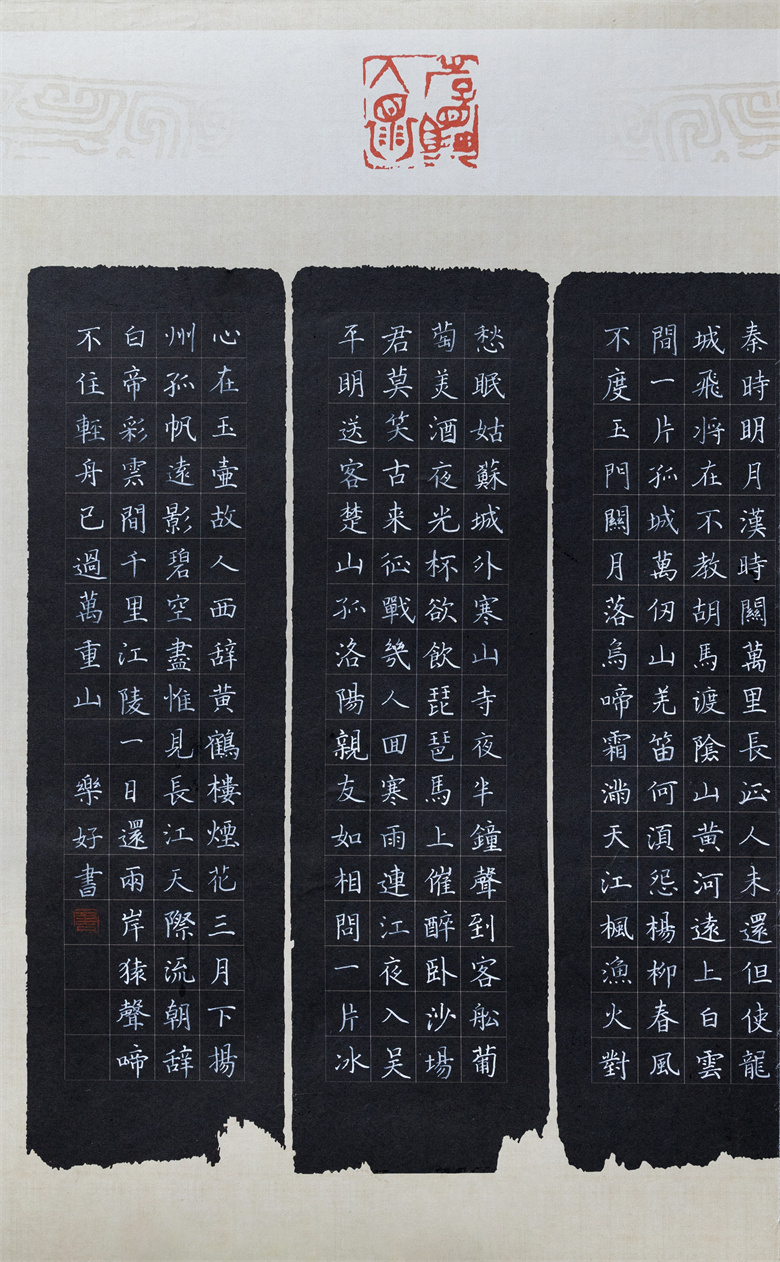 秦時明月漢時關萬里長征人未還但使龍
城飛将在不教胡馬渡陰山黄河遠上白雲
間一片孤城萬仞山羌笛何須怨楊柳春風
不度玉門關月落烏啼霜滿天江楓漁火對
愁眠姑蘇城外寒山寺夜半鐘聲到客船葡
萄美酒夜光杯欲飲琵琶馬上催醉卧沙場
君莫笑古来征戰幾人回寒雨連江夜入吴
平明送客楚山孤洛陽親友如相問一片冰
心在玉壷故人西辞黄鶴樓煙花三月下揚
州孤帆遠影碧空盡惟見長江天際流朝辞
白帝彩雲間千里江陵一日還兩岸猿聲啼
不住輕舟已過萬重山 樂好書